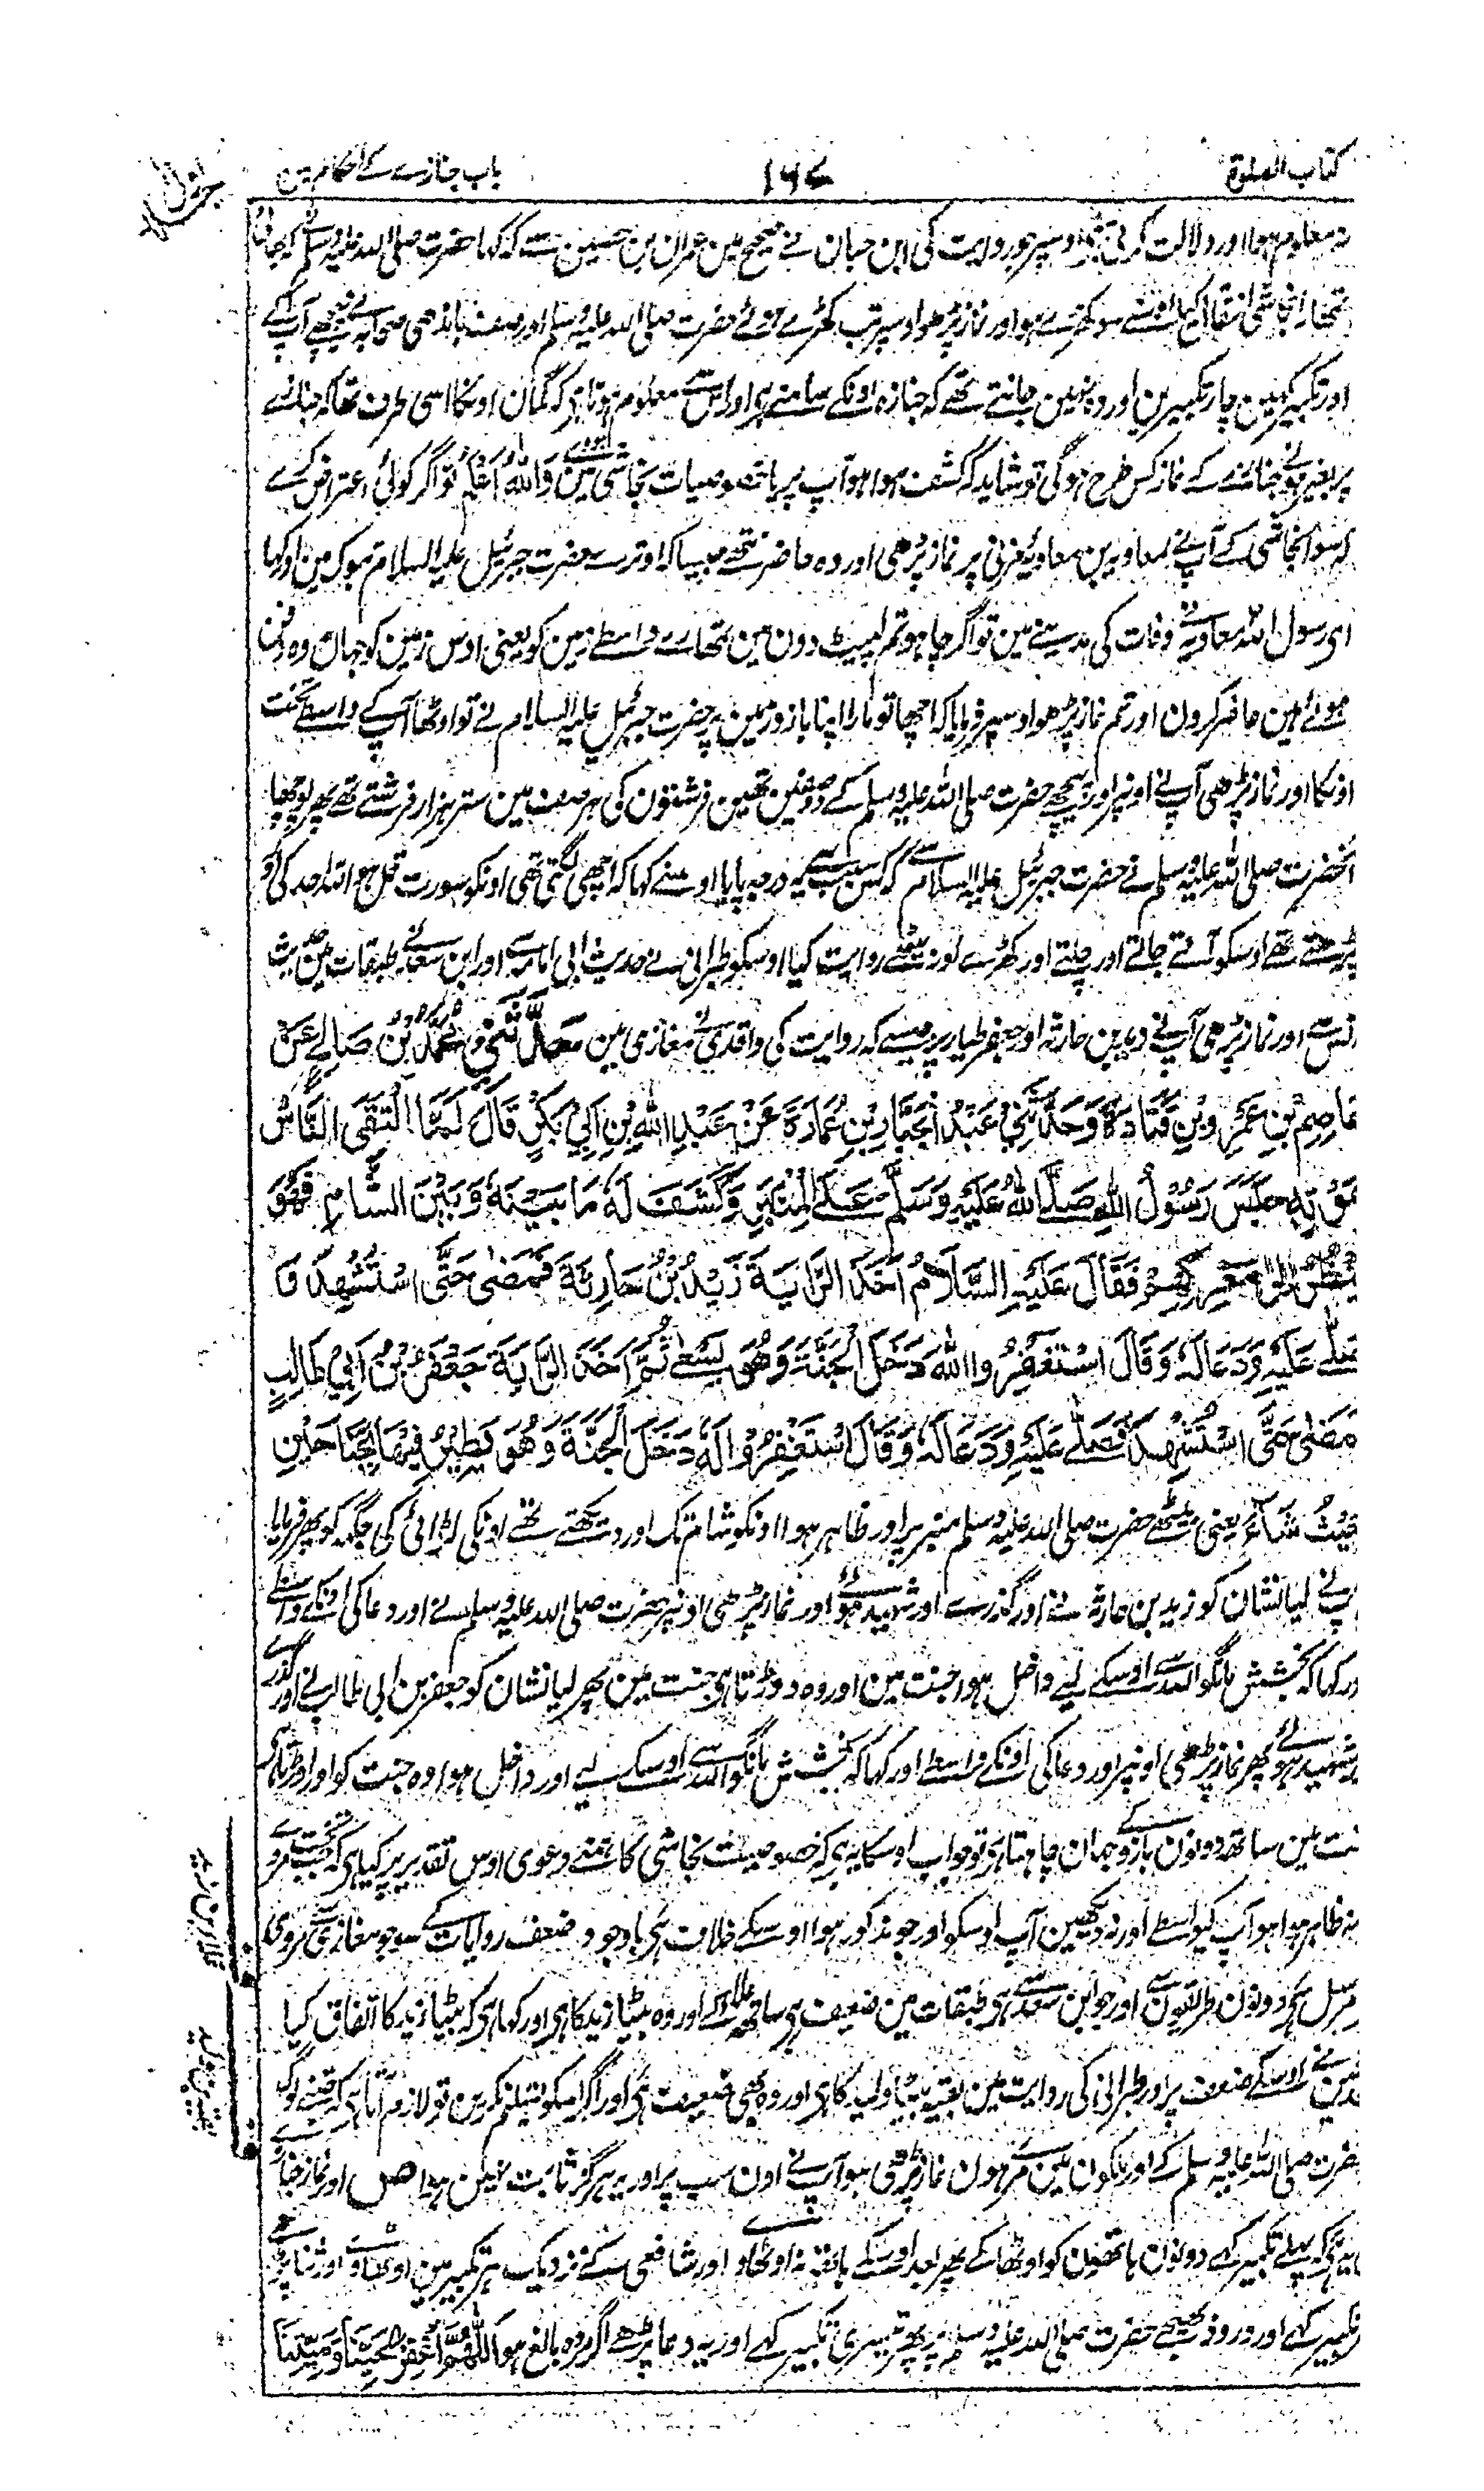 کتاب الصلوۃ
۱۶۷
باب جنازے کے احکام مین
نہ معلوم ہوا اور دلالت کرتی ہی اوسپر جو روایت کی ابن حبان نے صحیح مین عمران بن حسین سے کہ کہا حضرت صلی اللہ علیہ وسلم نے کہ بھائی
تمھارا نجاشی انتقال کیا اوسنے سو کھڑے ہو اور نماز پڑھو اوسپر تب کھڑے ہوئے حضرت صلی اللہ علیہ وسلم اور صف باندھی صحابہ نے پیچھے آپ کے
اور تکبیر کہین چار تکبیرین اور وہ نہین جانتے تھے کہ جنازہ اونکے سامنے ہی اور اس سے معلوم ہوتا ہی کہ گمان اونکا اسی طرف تھا کہ جنازے
پر بغیر ہوئے جنازے کے نماز کس طرح ہوگی تو شاید کہ کشف ہوا ہو آپ پر یا خصوصیات نجاشی مین ہووے وَاللّٰهُ اَعْلَمُ تو اگر کوئی اعتراض کرے
کہ سوا نجاشی کے آپ نے معاویہ بن معاویہ مزنی پر نماز پڑھی اور وہ حاضر نتھے جیسا کہ اوترے حضرت جبرئیل علیہ السلام تبوک مین اور کہا
ای رسول اللہ معاویہ نے وفات کی مدینے مین تو اگر چاہو تم لپیٹ دون مین تمھارے واسطے زمین کو یعنی اوس زمین کو جہان وہ دفن
ہوئے ہین حاضر کرون اور تم نماز پڑھو اوسپر فرمایا کہ اچھا تو مارا اپنا بازو زمین پر حضرت جبرئیل علیہ السلام نے تو اوٹھا آپ کے واسطے تخت
اونکا اور نماز پڑھی آپ نے اونپر اور پیچھے حضرت صلی اللہ علیہ وسلم کے دو صفین تھین فرشتون کی ہر صف مین ستر ہزار فرشتے تھے پھر پوچھا
آنحضرت صلی اللہ علیہ وسلم نے حضرت جبرئیل علیہ السلام سے کہ کس سبب سے یہ درجہ پایا اوسنے کہا کہ اچھی لگتی تھی اونکو سورت قل ہو اللہ احد کی اور
پڑھتے تھے اوسکو آتے جاتے اور چلتے اور کھڑے اور بیٹھے روایت کیا اوسکو طبرانی نے حدیث ابی امامہ سے اور ابن سعد نے طبقات مین حدیث
انس سے اور نماز پڑھی آپ نے زید بن حارثہ اور جعفر طیار پر جیسے کہ روایت کی واقدی نے مغازی مین حَدَّثَنِي مُحَمَّدُ بْنُ صَالِحٍ عَنْ
عَاصِمِ بْنِ عُمَرَ وبْنِ قَتَادَةَ وَحَدَّثَنِي عَبْدُ الْجَبَّارِ بْنِ عُمَارَةَ عَنْ عَبْدِ اللّٰهِ بْنِ اَبِي بَكْرٍ قَالَ لَمَّا الْتَقَى النَّاسُ
بِمُؤْتَةَ جَلَسَ رَسُوْلُ اللّٰهِ صَلَّى اللّٰهُ عَلَيْهِ وَسَلَّمَ عَلَى الْمِنْبَرِ وَكُشِفَ لَهٗ مَا بَيْنَهٗ وَبَيْنَ الشَّامِ فَهُوَ
يَنْظُرُ اِلٰى مَعْرِكِهِمْ فَقَالَ عَلَيْهِ السَّلَامُ اَخَذَ الرَّايَةَ زَيْدُ بْنُ حَارِثَةَ فَمَضٰى حَتَّى اسْتُشْهِدَ وَ
صَلّٰى عَلَيْهِ وَدَعَا لَهٗ وَقَالَ اسْتَغْفِرُوا اللّٰهَ دَخَلَ الْجَنَّةَ وَهُوَ يَسْعٰى ثُمَّ اَخَذَ الرَّايَةَ جَعْفَرُ بْنُ اَبِي طَالِبٍ
فَمَضٰى حَتَّى اسْتُشْهِدَ فَصَلّٰى عَلَيْهِ وَدَعَا لَهٗ وَقَالَ اسْتَغْفِرُوْا لَهٗ دَخَلَ الْجَنَّةَ وَهُوَ يَطِيْرُ فِيْهَا بِجَنَاحَيْنِ
حَيْثُ شَاءَ یعنی بیٹھے حضرت صلی اللہ علیہ وسلم منبر پر اور ظاہر ہوا اونکو شام تک اور دیکھتے تھے اونکی لڑائی کی جگہہ کو پھر فرمایا
آپ نے لیا نشان کو زید بن حارثہ نے اور گذرے اور شہید ہوئے اور نماز پڑھی اونپر حضرت صلی اللہ علیہ وسلم نے اور دعا کی اونکے واسطے
اور کہا کہ بخشش مانگو اللہ سے اوسکے لیے داخل ہوا جنت مین اور وہ دوڑتا ہی جنت مین پھر لیا نشان کو جعفر بن ابی طالب نے اور گذرے
اور شہید ہوئے پھر نماز پڑھی اونپر اور دعا کی اونکے واسطے اور کہا کہ بخشش مانگو اللہ سے اوسکے لیے اور داخل ہوا وہ جنت کو اور اوڑتا ہی
جنت مین ساتھ دونون بازو کے جہان چاہتا ہی تو جواب اوسکا یہ ہی کہ خصوصیت نجاشی کا ہمنے دعوی اوس تقدیر پر کیا ہی کہ تخت مردے
نہ ظاہر ہوا ہو آپ کیواسطے اور نہ دیکھین آپ اوسکو اور جو مذکور ہوا اوسکے خلاف ہی باوجود ضعف روایات کے سو جو مغازی سے مروی
مرسل ہی دونون طریقون سے اور جو ابن سعد سے ہی طبقات مین ضعیف ہی ساتھ علا کے اور وہ بیٹا زید کا ہی اور کہا ہی کہ بیٹا زید کا اتفاق کیا
محدثین نے اوسکے ضعف پر اور طبرانی کی روایت مین بقیہ بیٹا ولید کا ہی اور وہ بھی ضعیف ہی اور اگر اسکو تسلیم کرین تو لازم آتا ہی کہ جتنے لوگ
حضرت صلی اللہ علیہ وسلم کے اور ملکون مین مرے ہون نماز پڑھی ہو آپ نے اون سب پر اور یہ ہرگز ثابت نہین ہوا ص اور نماز جنازے
یہ ہی کہ پہلے تکبیر کہے دونون ہاتھون کو اوٹھا کے پھر بعد اوسکے ہاتھ نہ اوٹھاوے اور شافعی کے نزدیک ہر تکبیر مین اوٹھاوے اور ثنا پڑھے
تکبیر کہے اور درود بھیجے حضرت صلی اللہ علیہ وسلم پر پھر تیسری تکبیر کہے اور یہ دعا پڑھے اگر مردہ بالغ ہو اَللّٰهُمَّ اغْفِرْ لِحَيِّنَا وَمَيِّتِنَا